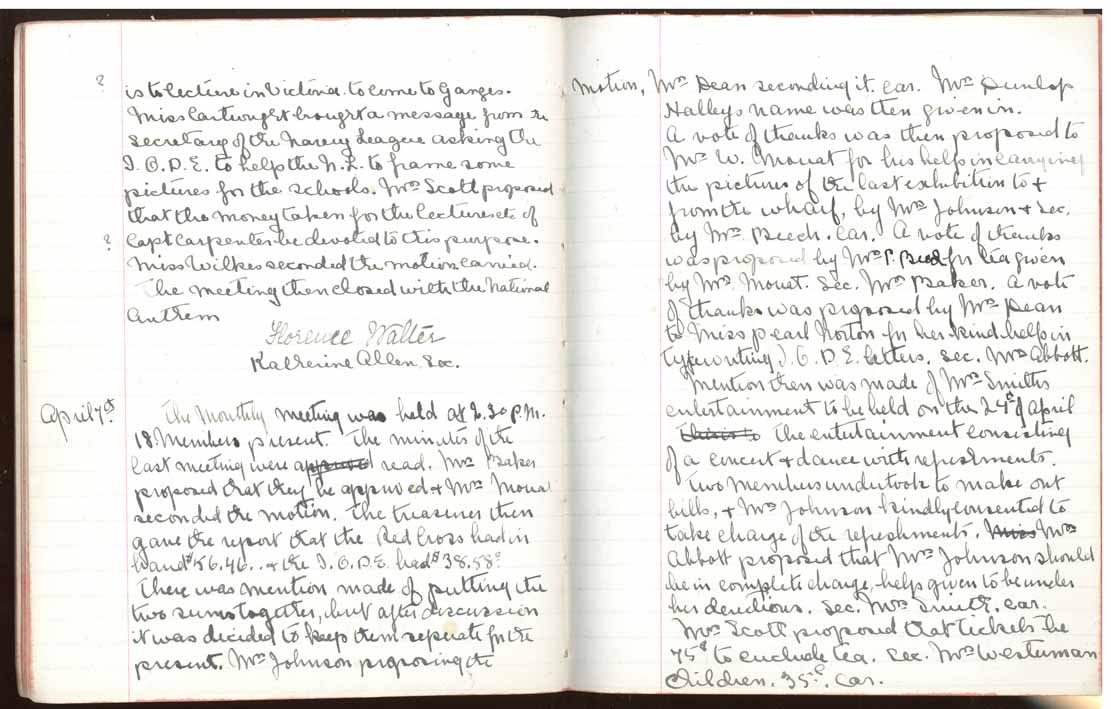 ? is to lecture in Victoria to come to Ganges.
Miss Cartwright brought a message from the
secretary of the Navey League asking the
I.O.D.E. to help the N.L. to frame some
pictures for the schools. Mrs Scott proposed
that the money taken for the lectures etc of
? Capt Carpenter be devoted to this purpose.
Miss Wilkes seconded the motion. carried.
The meeting then closed with the National
Anthem
Florence Walter
Katherine Allen Sec.
April 7th The Monthly meeting was held at 2.30 P.M.
18 Members present. The minutes of the
last meeting were approved read. Mrs Baker
proposed that they be approved & Mrs Mouat
seconded the motion. The treasurer then
gave the report that the Red Cross had in
hand $56.46.. & the I.O.D.E. had $38.58c
There was mention made of putting the
two sums together, but after discussion
it was decided to keep them seperate for the
present. Mrs Johnson proposing the
motion, Mrs Dean seconding it. car. Mrs Dunlop
Halleys name was then given in.
A vote of thanks was then proposed to
Mr W. Mouat for his help in carrying
the pictures of the last exhibition to &
from the wharf, by Mrs Johnson & Sec.
by Mrs Beech. Car. A vote of thanks
was proposed by Mrs P. for tea given
by Mrs Mouat. Sec. Mrs Baker. A vote
of thanks was proposed by Mrs Dean
to Miss Pearl Norton for her kind help in
typewriting I.O.D.E. letters. Sec. Mrs Abbott.
Mention then was made of Mrs Smiths
entertainment to be held on the 24th of April
This is to The entertainment consisting
of a concert & dance with refreshments.
Two members undertook to make out
bills, & Mrs Johnson kindly consented to
take charge of the refreshments. Miss Mrs
Abbott proposed that Mrs Johnson should
be in complete charge, helps given to be under
her deridious. Sec. Mrs Smith. Car.
Mrs Scott proposed that tickets be
75c to exclude tea. Sec. Mrs Westerman
Children. 35c. Car.